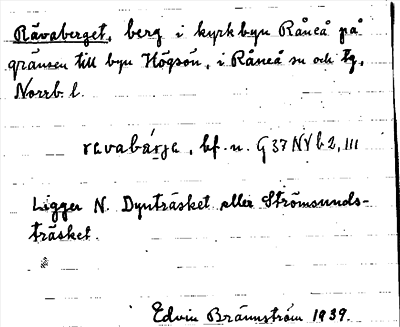 Råvaberget, berg i kyrkbyn Råneå på
gränsen till byn Högsön, i Råneå sn och tg,
Norrb. l.
ravabárje, bf. n. G 37 NV b 2, III
Ligger N. Dynträsket eller Strömsunds-
träsket.
Edvin Brännström 1939.